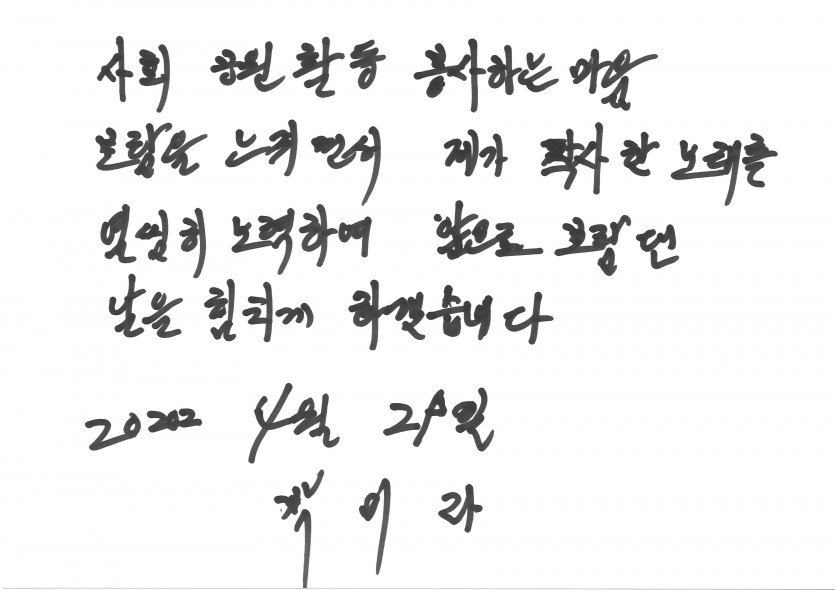 사회 공원 활동 봉사하는 마음
보람을 느키면서 제가 작사한 노래를
열심히 노력하여 앞으로 보람 댄
날을 힘차게 하겠습니다
20202 4월 29일
이라